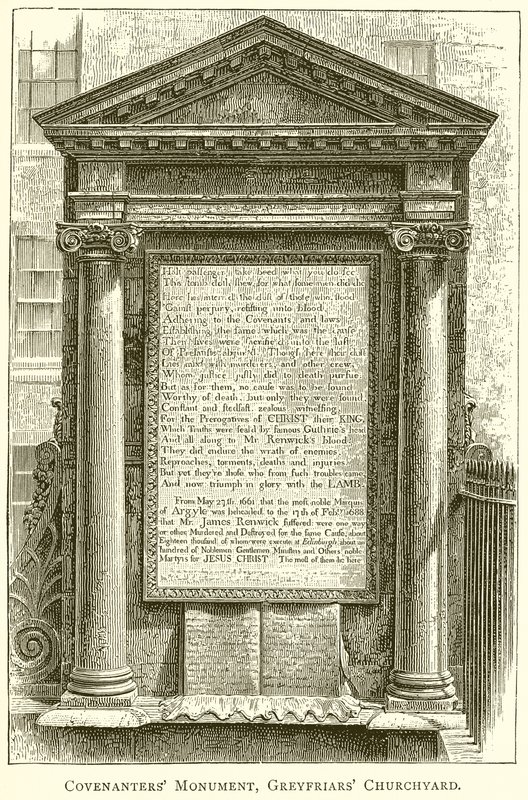 Halt passenger, take heed what you do see,
This tomb doth shew, for what some men did die.
Here lies interr'd the dust of those who stood
'Gainst perjury, resisting unto blood,
Adhering to the Covenants, and laws
Establishing the same which was the cause
Their lives were sacrific'd unto the lust
Of Prelatists abjur'd. Though here their dust
Lies mixt with murderers, and other crew,
Whom justice justly did to death pursue
But as for them, no cause was to be found
Worthy of death, but only they were found
Constant and stedfast, zealous witnessing,
For the Prerogatives of CHRIST their KING.
Which Truths were seal'd by famous Guthrie's head
And all along to Mr. Renwick's blood
They did endure the wrath of enemies,
Reproaches, torments, deaths and injuries
But yet they're those who from such troubles came,
And now triumph in glory with the LAMB.
From May 27th. 1661 that the most noble Marquis
of Argyle was beheaded to the 17th of Feby. 1688
that Mr. James Renwick suffered; were one way
or other Murdered and Destroyed for the same Cause, about
Eighteen thousand of whom were execute at Edinburgh about an
hundred of Noblemen Gentlemen Ministers and Others noble
Martyrs for JESUS CHRIST The most of them lie here
COVENANTERS' MONUMENT, GREYFRIARS' CHURCHYARD.